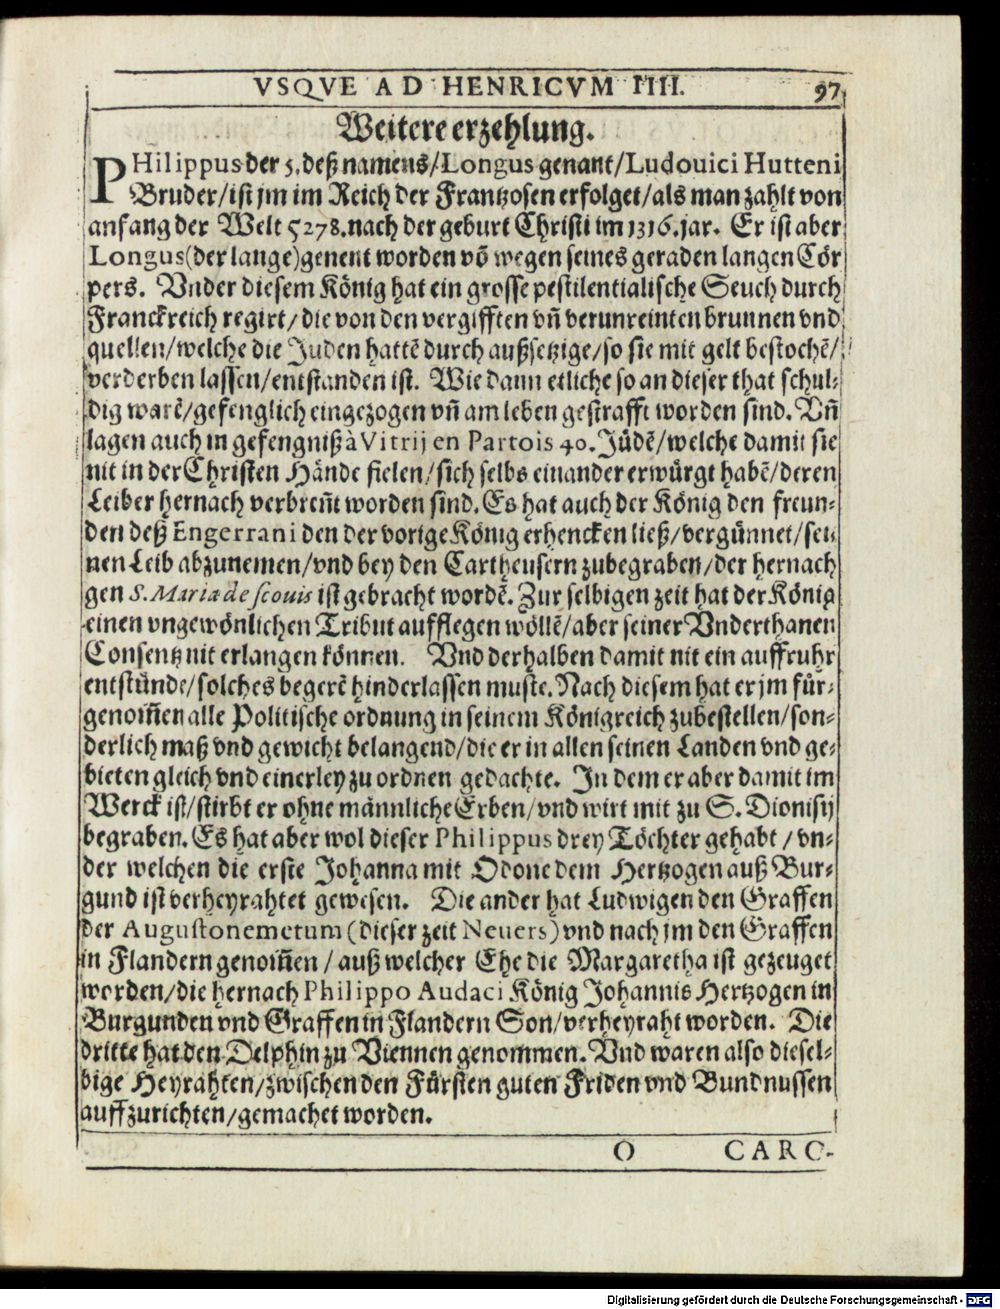 VSQVE AD HENRICVM IIII. 97
Weitere erzehlung.
PHilippus der 5. deß namens/Longus genant/Ludouici Hutteni
Bruder/ist jm im Reich der Frantzosen erfolget/als man zahlt von
anfang der Welt 5278. nach der geburt Christi im 1316. jar. Er ist aber
Longus(der lange)genent worden võ wegen seines geraden langen Cör
pers. Vnder diesem König hat ein grosse pestilentialische Seuch durch
Franckreich regirt/die von den vergifften vñ verunreinten brunnen vnd
quellen/welche die Juden hattẽ durch außsetzige/so sie mit gelt bestochẽ/
verderben lassen/entstanden ist. Wie dann etliche so an dieser that schul⸗
dig warẽ/gefenglich eingezogen vñ am leben gestrafft worden sind. Vñ
lagen auch in gefengniß à Vitrij en Partois 40. Jüdẽ/welche damit sie
nit in der Christen Hände fielen/sich selbs einander erwürgt habẽ/deren
Leiber hernach verbreñt worden sind. Es hat auch der König den freun⸗
den deß Engerrani den der vorige König erhencken ließ/vergünnet/sei⸗
nen Leib abzunemen/vnd bey den Cartheusern zubegraben/der hernach
gen S. Maria de scouis ist gebracht wordẽ. Zur selbigen zeit hat der König
einen vngewönlichen Tribut aufflegen wöllẽ/aber seiner Vnderthanen
Consentz nit erlangen können. Vnd derhalben damit nit ein auffruhr
entstünde/solches begerẽ hinderlassen muste. Nach diesem hat er jm für⸗
genom̃en alle Politische ordnung in seinem Königreich zubestellen/son⸗
derlich maß vnd gewicht belangend/die er in allen seinen Landen vnd ge⸗
bieten gleich vnd einerley zu ordnen gedachte. In dem er aber damit im
Werck ist/stirbt er ohne männliche Erben/vnd wirt mit zu S. Dionisij
begraben. Es hat aber wol dieser Philippus drey Töchter gehabt/vn⸗
der welchen die erste Johanna mit Odone dem Hertzogen auß Bur⸗
gund ist verheyrahtet gewesen. Die ander hat Ludwigen den Graffen
der Augustonemetum(dieser zeit Neuers)vnd nach jm den Graffen
in Flandern genom̃en/auß welcher Ehe die Margaretha ist gezeuget
worden/die hernach Philippo Audaci König Johannis Hertzogen in
Burgunden vnd Graffen in Flandern Son/verheyraht worden. Die
dritte hat den Delphin zu Viennen genommen. Vnd waren also diesel⸗
bige Heyrahten/zwischen den Fürsten guten Friden vnd Bundnussen
auffzurichten/gemachet worden.
O CARO-
Digitalisierung gefördert durch die Deutsche Forschungsgemeinschaft - DFG